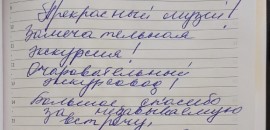 Прекрасный музей!
Замечательная
экскурсия!
Очаровательный
экскурсовод!
Большое спасибо
за незабываемую
встречу.